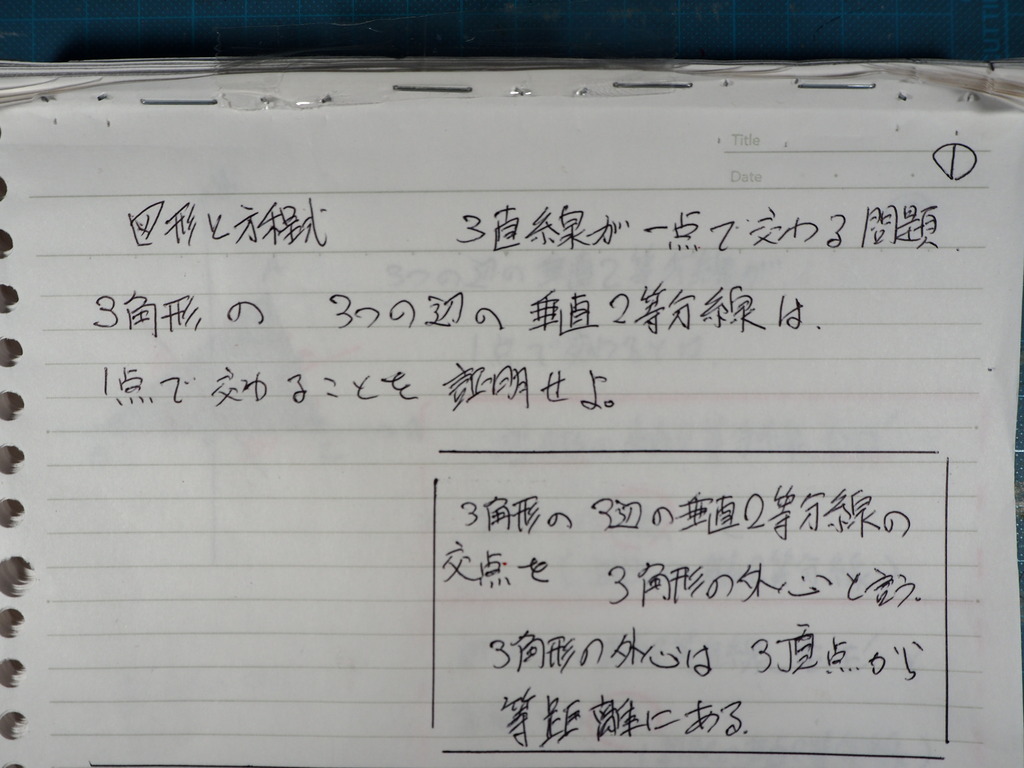 Title
Date
①
図形と方程式 3直線が一点で交わる問題.
3角形の 3つの辺の垂直2等分線は.
1点で交わることを証明せよ。
3角形の3辺の垂直2等分線の
交点を 3角形の外心と言う.
3角形の外心は3頂点から
等距離にある.